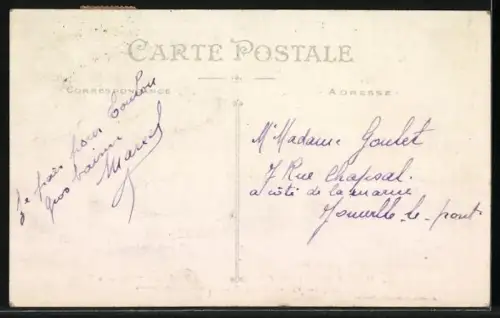 CARTE POSTALE
CORRESPONDANCE
ADRESSE
Je pars pour Toulon
Gros baiser
Marcel
Mr Madame Goulet
7 Rue Chapsal
a côté de la mairie
Joinville-le-pont